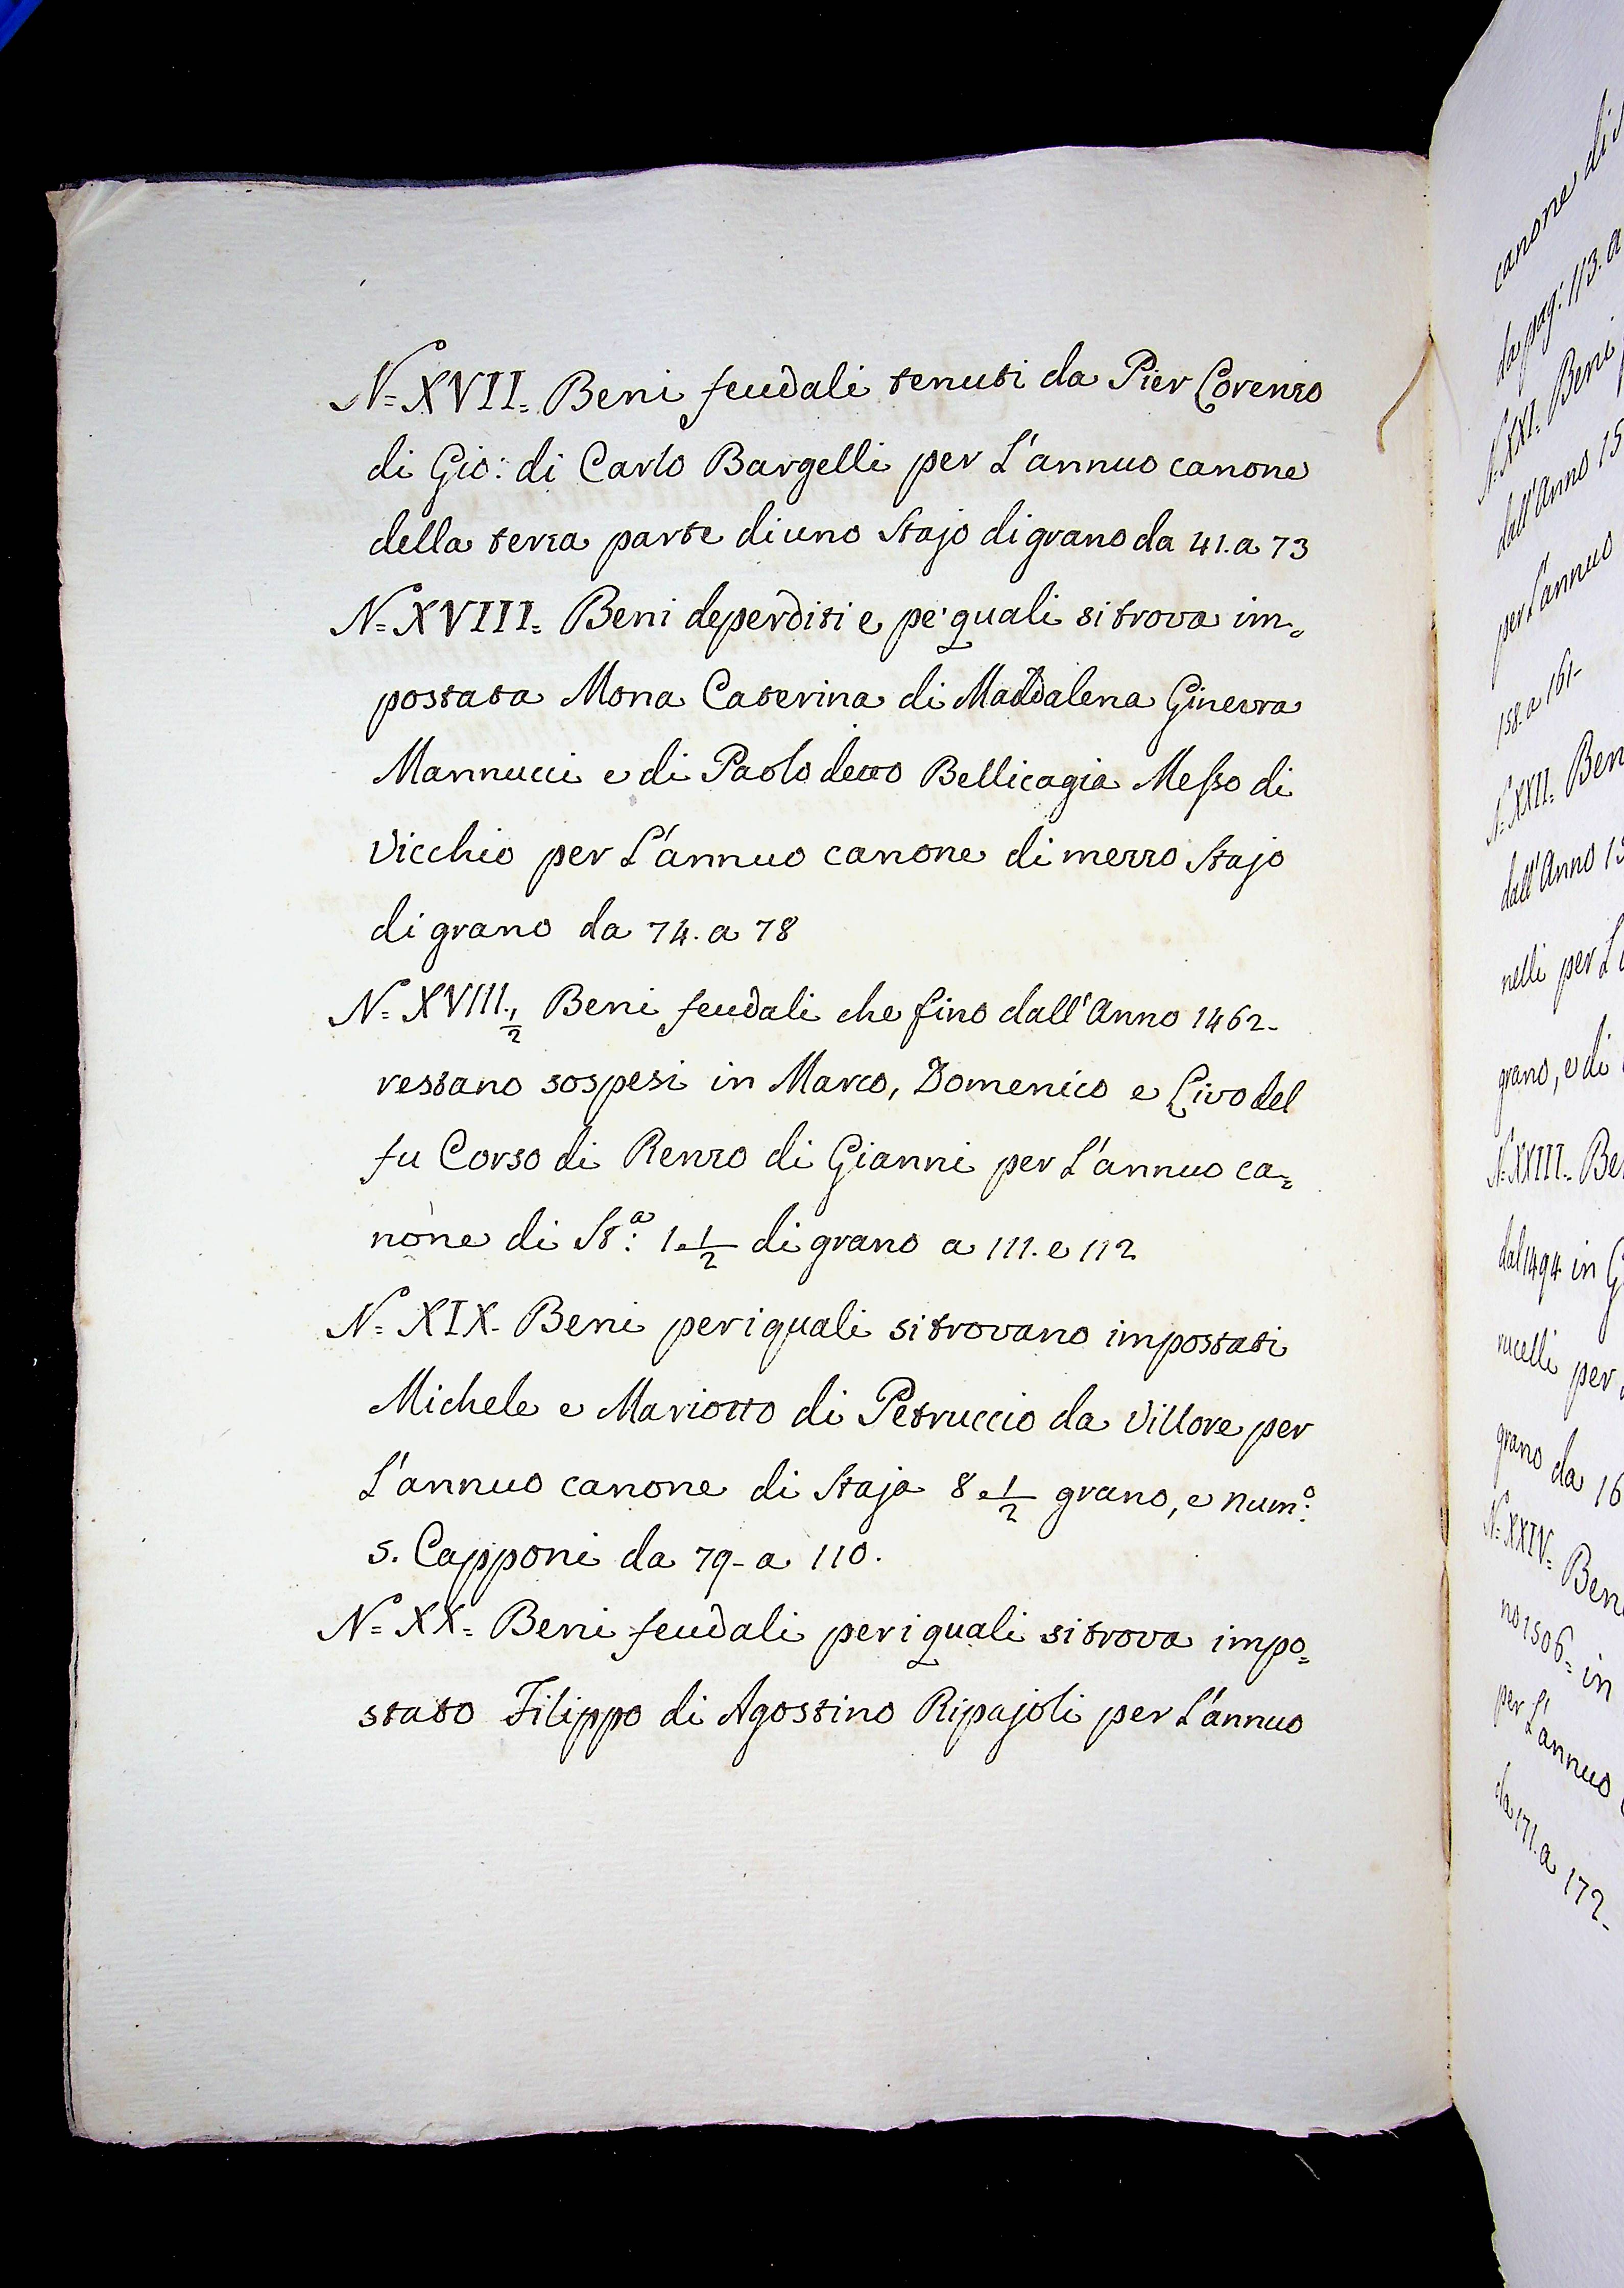 N.= XVII.= Beni feudali tenuti da Pier Lorenzo
di Gio: di Carlo Bargelli per L'annuo canone
della terza parte di uno Stajo di grano da 41. a 73
N.= XVIII.= Beni deperditi e pe' quali si trova im=
postata Mona Caterina di Maddalena Ginevra
Mannucci e di Paolo detto Bellicagia Messo di
Vicchio per L'annuo canone di mezzo Stajo
di grano da 74. a 78
N.= XVIII. 1/2 Beni feudali che fino dall'Anno 1462-
restano sospesi in Marco, Domenico e Livo del
fu Corso di Renzo di Gianni per L'annuo ca=
none di St.ª: 1. 1/2 di grano a 111. e 112
N.= XIX- Beni per i quali si trovano impostati
Michele e Mariotto di Petruccio da Villore per
L'annuo canone di Staja 8 e 1/2 grano, e num.º:
5. Capponi da 79- a 110.
N.= XX.= Beni feudali per i quali si trova impo=
stato Filippo di Agostino Ripajoli per L'annuo
canone di
da pag: 113. a
N.= XXI.= Beni
dall'Anno 15
per L'annuo
158. a 161-
N.= XXII.= Ben
dall'Anno 15
nelli per L'
grano, e di
N.= XXIII.= Be
dal 1494 in G
rucelli per
grano da 16
N.= XXIV.= Ben
no 1506= in
per L'annuo
da 171. a 172-